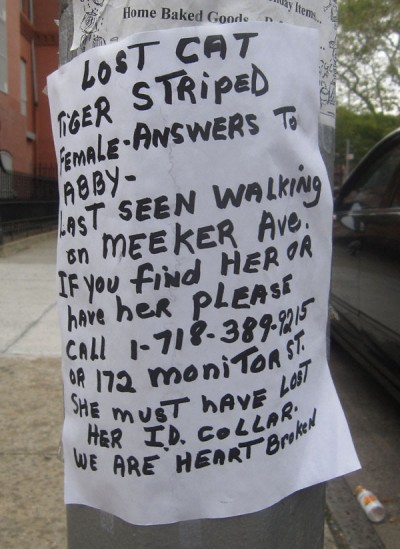 Home Baked Goods
LOST CAT
TIGER STRIPED
FEMALE-ANSWERS TO
ABBY-
LAST SEEN WALKING
on MEEKER Ave.
IF you find HER OR
have her PLEASE
CALL 1-718-389-9215
OR 172 moniTOR ST.
SHE musT have LOST
HER I.D. COLLAR.
WE ARE HEART BRoken